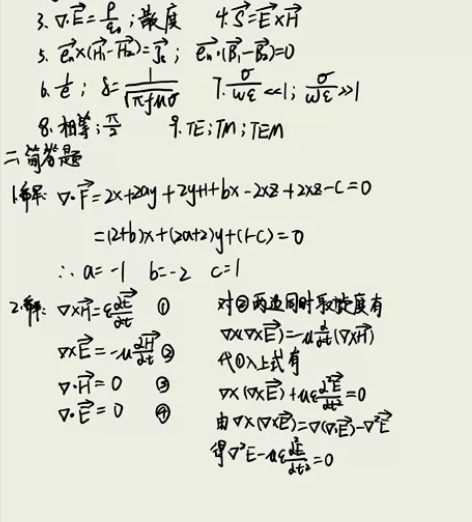 3. ∇·E⃗=ρ/ε₀；散度 4. S⃗=E⃗×H⃗
5. e⃗ₙ×(H⃗₁-H⃗₂)=J⃗s； e⃗ₙ·(B⃗₁-B⃗₂)=0
6. 1/e； δ=1/√(πfμσ) 7. σ/ωε<<1； σ/ωε>>1
8. 相等；π/2 9. TE；TM；TEM
二、简答题
1.解: ∇·F⃗=2x+2ay+2y+1+bx-2xz+2xz-c=0
=(2+b)x+(2a+2)y+(1-c)=0
∴ a=-1 b=-2 c=1
2.解: ∇×H⃗=ε∂E⃗/∂t ①
∇×E⃗=-μ∂H⃗/∂t ②
∇·H⃗=0 ③
∇·E⃗=0 ④
对②两边同时取旋度有
∇×(∇×E⃗)=-μ∂/∂t(∇×H⃗)
代①入上式有
∇×(∇×E⃗)+με∂²E⃗/∂t²=0
由∇×(∇×E⃗)=∇(∇·E⃗)-∇²E⃗
得∇²E-με∂²E/∂t²=0